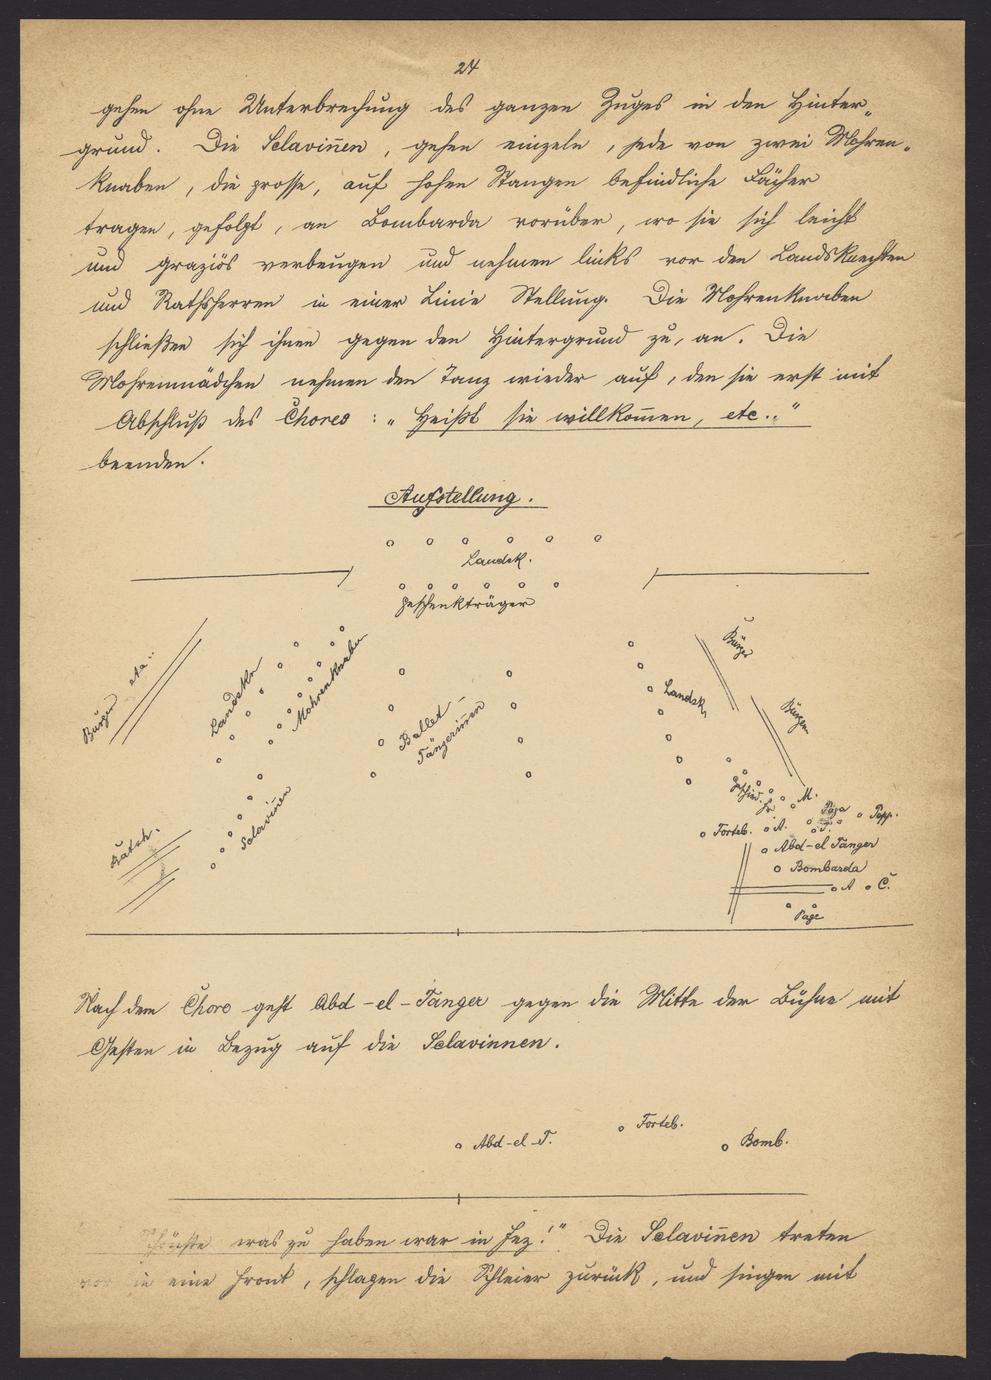 24
gehen ohne Unterbrechung des ganzen Zuges in den Hinter„
grund. Die Sclavin̄en, gehen einzeln, jede von zwei Mohren„
knaben, die grosse, auf hohen Stangen befindliche Fächer
tragen, gefolgt, an Bombarda vorüber, wo sie sich leicht
und graziös verbeugen und nehmen links vor den Landsknechten
und Rathsherren in einer Linie Stellung. Die Mohrenknaben
schließen sich ihnen gegen den Hintergrund zu, an. Die
Mohrenmädchen nehmen den Tanz wieder auf, den sie erst mit
Abschluß des Chores : „Heißt sie willkom̄en, etc.."
beenden.
Aufstellung.
Landsk.
Geschenkträger
Bürger
Bürger etc..
Landskn
Mohrenknaben
Landsk.
Bürger
Ballet-
Tänzerin̄en
Sclavin̄en
M.
Page
Papp.
Forteb.
A.
T.
Rathsh.
Abd-el Tanger
Bombarda
A
C.
Page
Nach dem Chore geht Abd-el-Tanger gegen die Mitte der Bühne mit
Gesten in Bezug auf die Sclavinnen.
Forteb.
Abd-el-T.
Bomb.
Schönste was zu haben war in Fez!" Die Sclavin̄en treten
vor in eine Front, schlagen die Schleier zurück, und singen mit